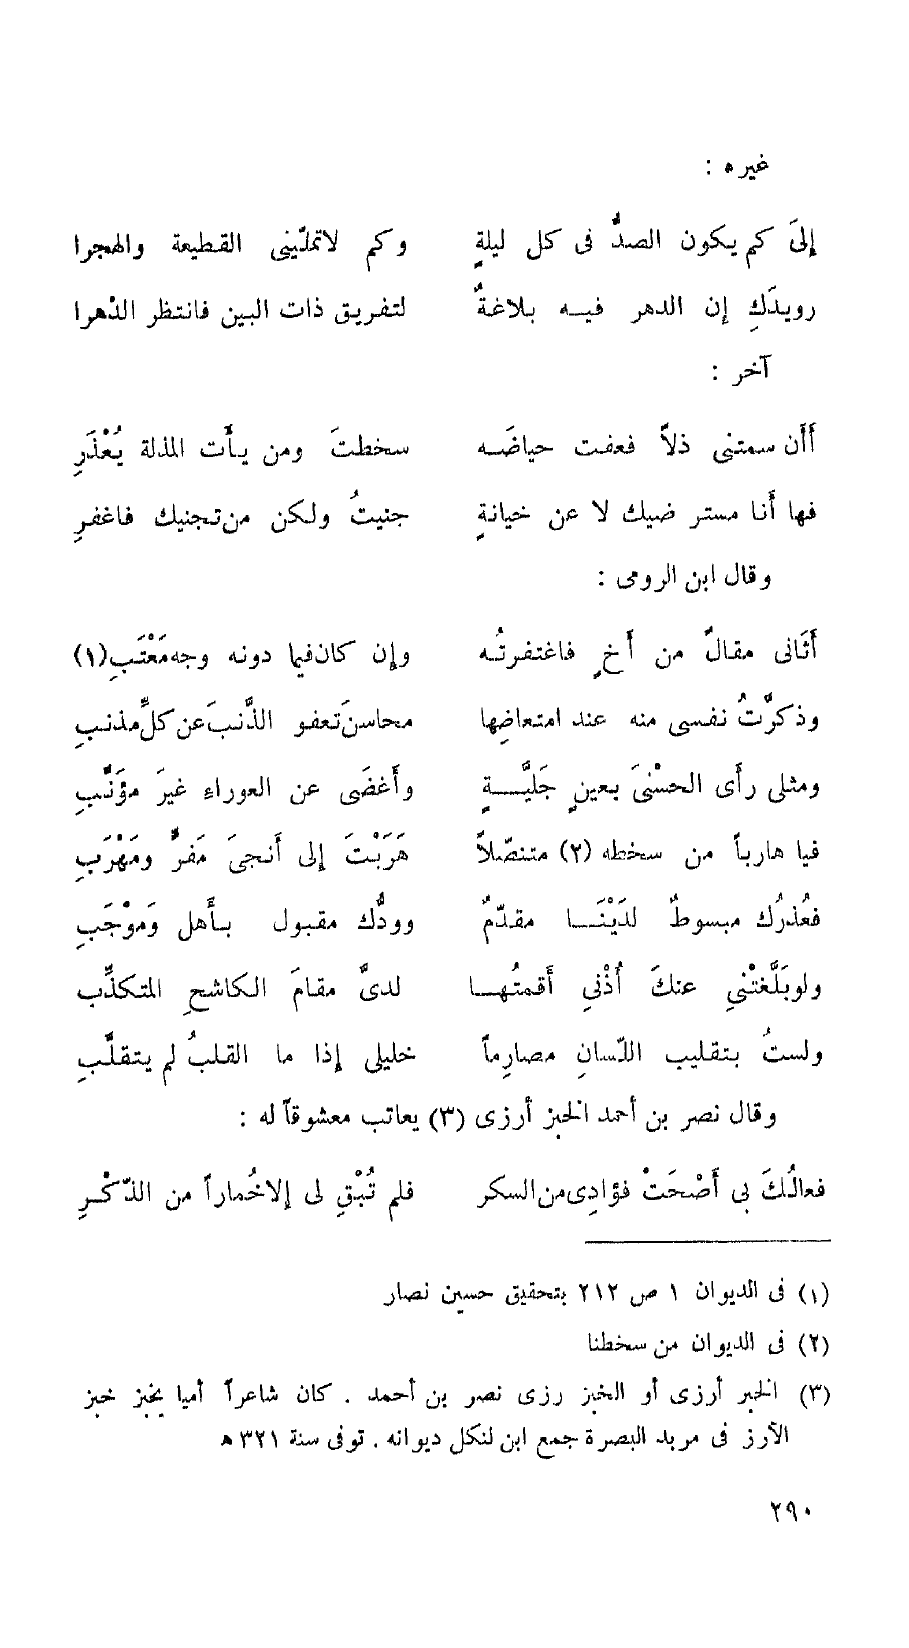 غيره :
إلىَ كم يكون الصدُّ فى كل ليلةٍ وكم لاتملّينى القطيعة والهجرا
رويدَكِ إن الدهر فيه بلاغةٌ لتفريق ذات البين فانتظر الدّهرا
آخر :
أأن سمتنى ذلاًّ فعفت حياضَه سخطتَ ومن يأت المذلة يُعْذَرِ
فها أنا مستر ضيك لا عن خيانةٍ جنيتُ ولكن من تجنيك فاغفرِ
وقال ابن الرومى :
أتانى مقالٌ من أخٍ فاغتفرتُه وإن كان فيما دونه وجه مَعْتَبِ(١)
وذكرّتُ نفسى منه عند امتعاضِها محاسنَ تعفو الذّنبَ عن كلِّ مذنبِ
ومثلى رأى الحسْنىَ بعينٍ جَليَّةٍ وأغضَى عن العوراءِ غيرَ مؤنَّبِ
فيا هارباً من سخطه (٢) متنصّلاً هَرَبْتَ إلى أنجىَ مَفرٍّ ومَهْرَبِ
فعُذرُك مبسوطٌ لدَيْنَا مقدّمٌ وودُّك مقبول بأهل وَموْجَبِ
ولوبَلَّغتْنيِ عنكَ أُذْنيِ أقمتُها لدىَّ مقامَ الكاشحِ المتكذِّبِ
ولستُ بتقليب اللّسانِ مصارِماً خليلى إذا ما القلبُ لم يتقلّبِ
وقال نصر بن أحمد الخبز أرزى (٣) يعاتب معشوقاً له :
فعالُكَ بى أضْحَتْ فؤادِى من السكر فلم تُبْقِ لى إلاخُماراً من الذّكْرِ
(١) فى الديوان ١ ص ٢١٢ بتحقيق حسين نصار
(٢) فى الديوان من سخطنا
(٣) الخبر أرزى أو الخبز رزى نصر بن أحمد . كان شاعراً أميا يخبز خبز
الأرز فى مربد البصرة جمع ابن لنكل ديوانه . توفى سنة ٣٢١ ه
٢٩٠